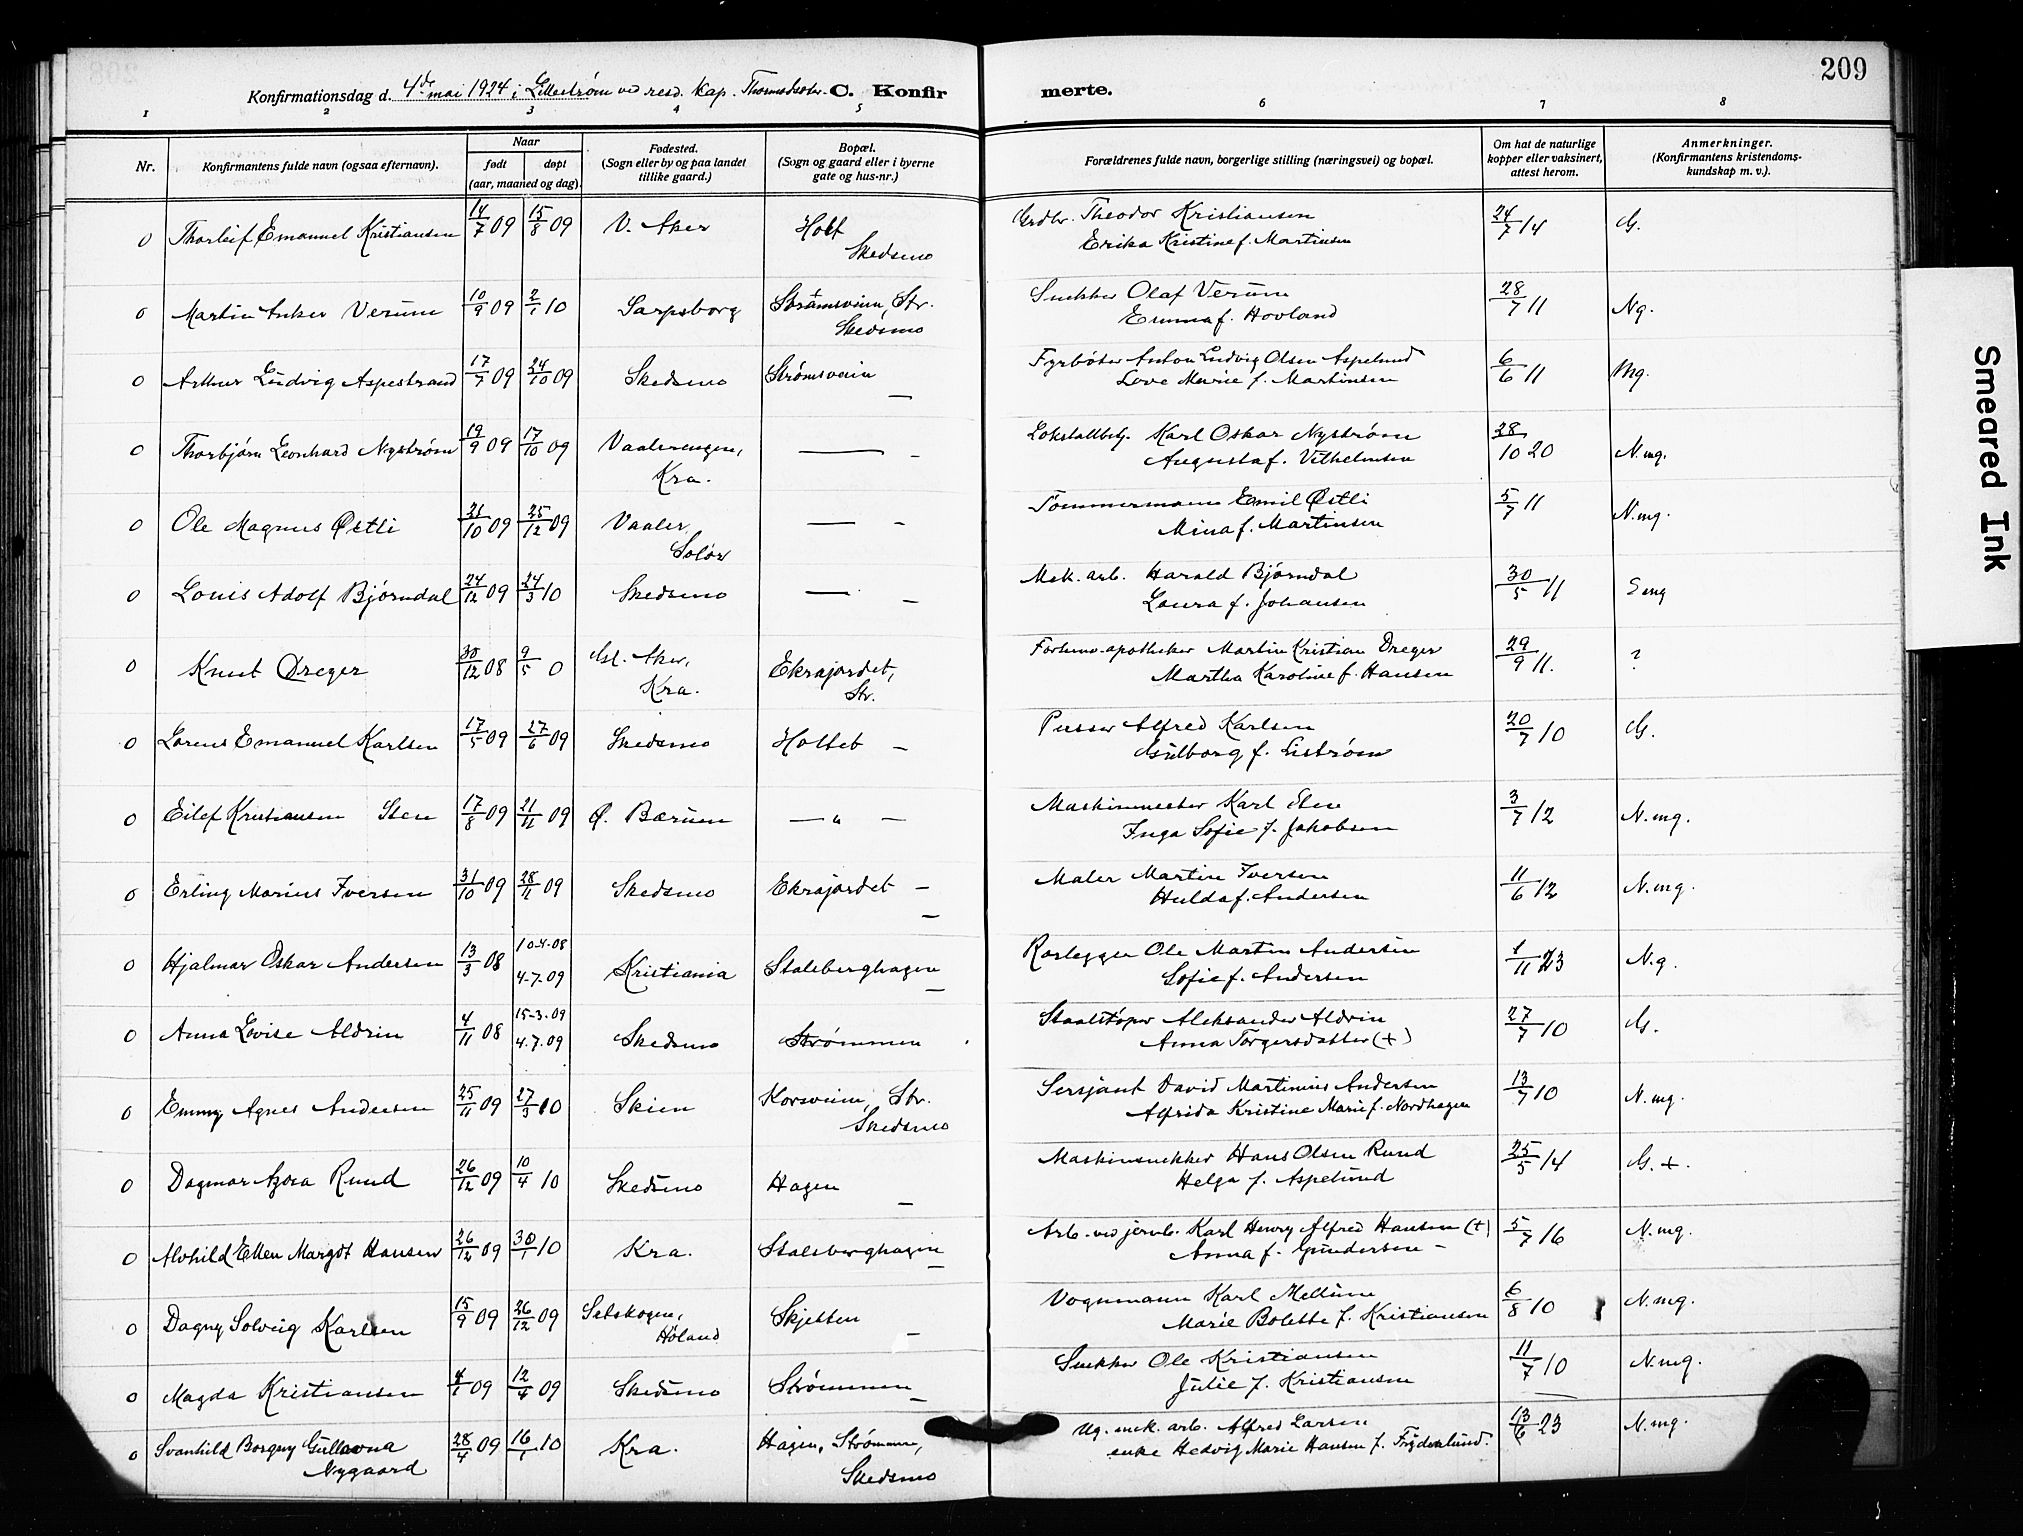 209
Konfirmationsdag d. 4de mai 1924 i Lillestrøm ved resd. kap. C. Konfirmerte.
1 2 3 4 5 6 7 8
Nr.
Konfirmantens fulde navn (ogsaa efternavn).
Naar
født døpt
(aar, maaned og dag).
Fødested.
(Sogn eller by og paa landet
tillike gaard.)
Bopæl.
(Sogn og gaard eller i byerne
gate og hus-nr.)
Forældrenes fulde navn, borgerlige stilling (næringsvei) og bopæl.
Om hat de naturlige
kopper eller vaksinert,
attest herom.
Anmerkninger.
(Konfirmantens kristendoms-
kundskap m. v.).
0 Thorleif Emanuel Kristiansen 14/7 09 15/8 09 V. Aker Holt Grdbr. Theodor Kristiansen 24/7 14 G.
Skedsmo Erika Kristine f. Martinsen
0 Martin Anker Verum 10/9 09 2/1 10 Sarpsborg Strømsveien, Str. Snekker Olaf Verum 28/7 11 Ng.
Skedsmo Emma f. Hovland
0 Arthur Ludvig Aspestrand 17/7 09 24/10 09 Skedsmo Strømsveien Fyrbøter Anton Ludvig Olsen Aspelund 6/6 11 Mg.
— Love Marie f. Martinsen
0 Thorbjørn Leonhard Nystrøm 19/9 09 17/10 09 Vaalerengen, — - Lokstallbetj. Karl Oskar Nystrøm 28/10 20 N.mg.
Kra. Augusta f. Vilhelmsen
0 Ole Magnus Østli 21/10 09 25/12 09 Vaaler — - Tømmermann Emil Østli 5/7 11 N.mg.
Solør Mina f. Martinsen
0 Louis Adolf Bjørndal 24/12 09 24/3 10 Skedsmo — - Mek. arb. Harald Bjørndal 30/5 11 S mg
Laura f. Johansen
0 Knut Dreger 30/12 08 9/5 0 Gl. Aker, Ekrajordet, apotheker Martin Kristian Dreger 29/9 11. ?
Kra. Str. Martha Karoline f. Hansen
0 Lorens Emanuel Karlsen 17/5 09 27/6 09 Skedsmo Holteb — Pusser Alfred Karlsen 20/7 10 G.
Gulborg f. Liström
0 Eilef Kristiansen Sten 17/8 09 21/11 09 Ø. Bærum — " — Maskinmester Karl Sten 3/7 12 N.mg.
Inga Sofie f. Jakobsen
0 Erling Marius Iversen 31/10 09 28/11 09 Skedsmo Ekrajordet — Maler Martin Iversen 11/6 12 N.mg.
— Hulda f. Andersen
0 Hjalmar Oskar Andersen 13/3 08 10-4-08 Kristiania Stalsberghagen Rørlegger Ole Martin Andersen 1/11 23 N.g.
4-7-09 — Sofie f. Andersen
0 Anna Lovise Aldrin 4/11 08 15-3-09 Skedsmo Strømmen Staalstøper Aleksander Aldrin 27/7 10 G.
4.7.09 Anna Torgersdatter (+)
0 Emmy Agnes Andersen 25/11 09 27/3 10 Skien Korsveien, Str. Sersjant David Martinius Andersen 13/7 10 N.mg.
Skedsmo Alfrida Kristine Marie f. Nordhagen
0 Dagmar Azora Rund 26/12 09 10/4 10 Skedsmo Hagen Maskinsnekker Hans Olsen Rund 25/5 14 G. +.
— Helga f. Aspelund
0 Alvhild Ellen Margot Hansen 26/12 09 30/1 10 Kra. Stalsberghagen Arb. ved jernb. Karl Henry Alfred Hansen (+) 5/7 16 N.mg.
— Anna f. Gundersen —
0 Dagny Solveig Karlsen 15/9 09 26/12 09 Setskogen, Skjetten Vognmann Karl Mellum 6/8 10 N.mg.
Høland — Marie Bolette f. Kristiansen
0 Magda Kristiansen 4/1 09 12/4 09 Skedsmo Strømmen Snekker Ole Kristiansen 11/7 10 N.mg.
— Julie f. Kristiansen
0 Svanhild Borgny Gullavna 28/4 09 16/1 10 Kra. Hagen, Strømmen, Ug. mek. arb. Alfred Larsen 13/6 23 N.mg.
Nygaard Skedsmo enke Hedvig Marie Hansen f. Frydenlund.
Smeared Ink